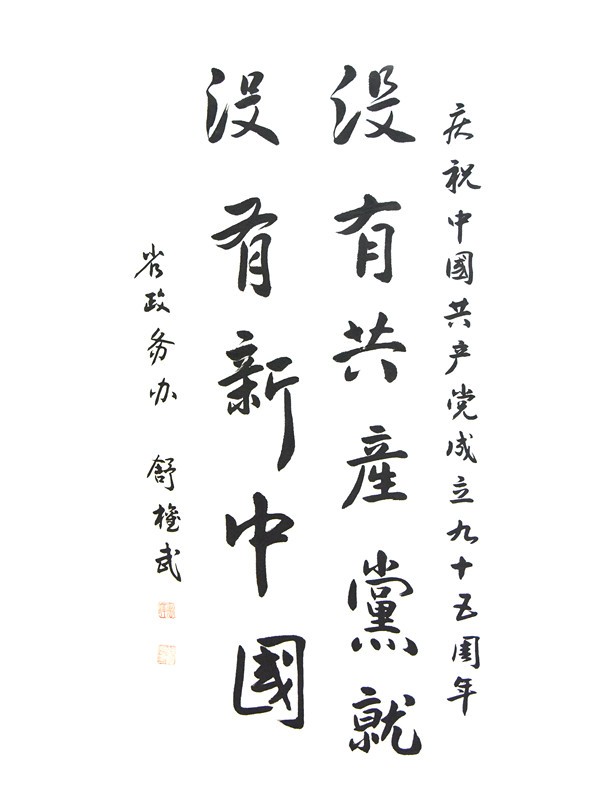 庆祝中國共产党成立九十五周年
没有共産黨就
没有新中國
省政务办 舒权武